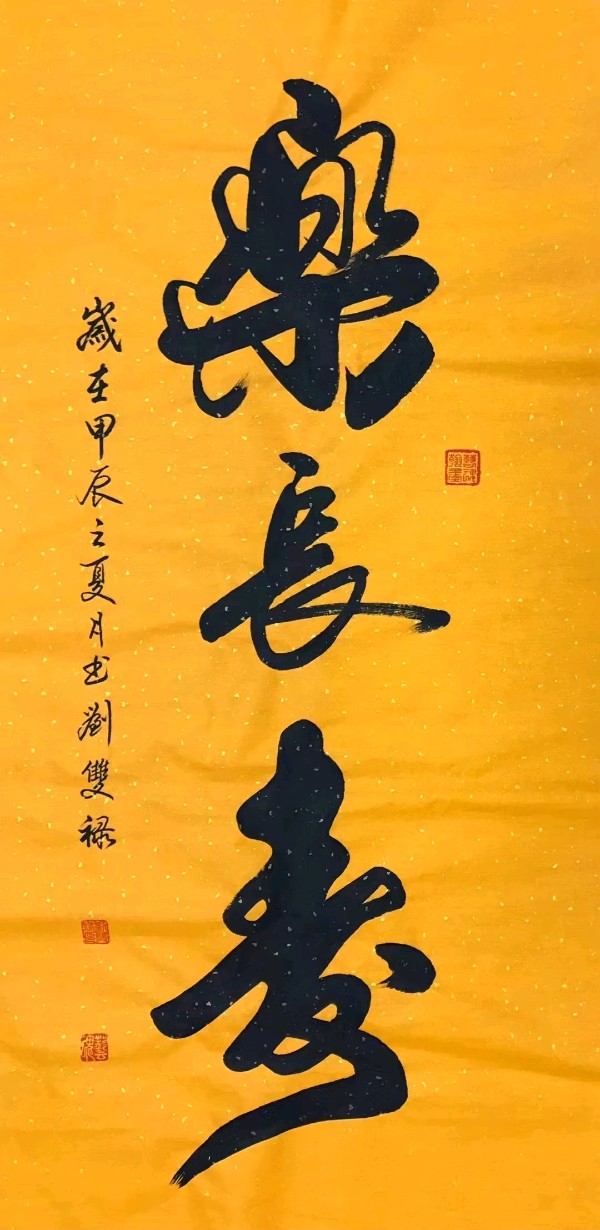 樂長壽
歲在甲辰之夏月书劉雙祿